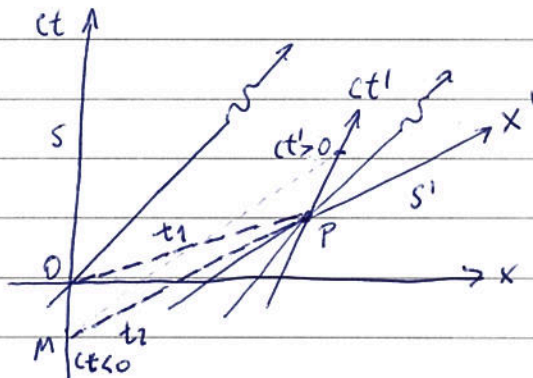 ct
S
ct'
x'
ct'>0
S'
t1
P
O
x
M
t2
ct<0